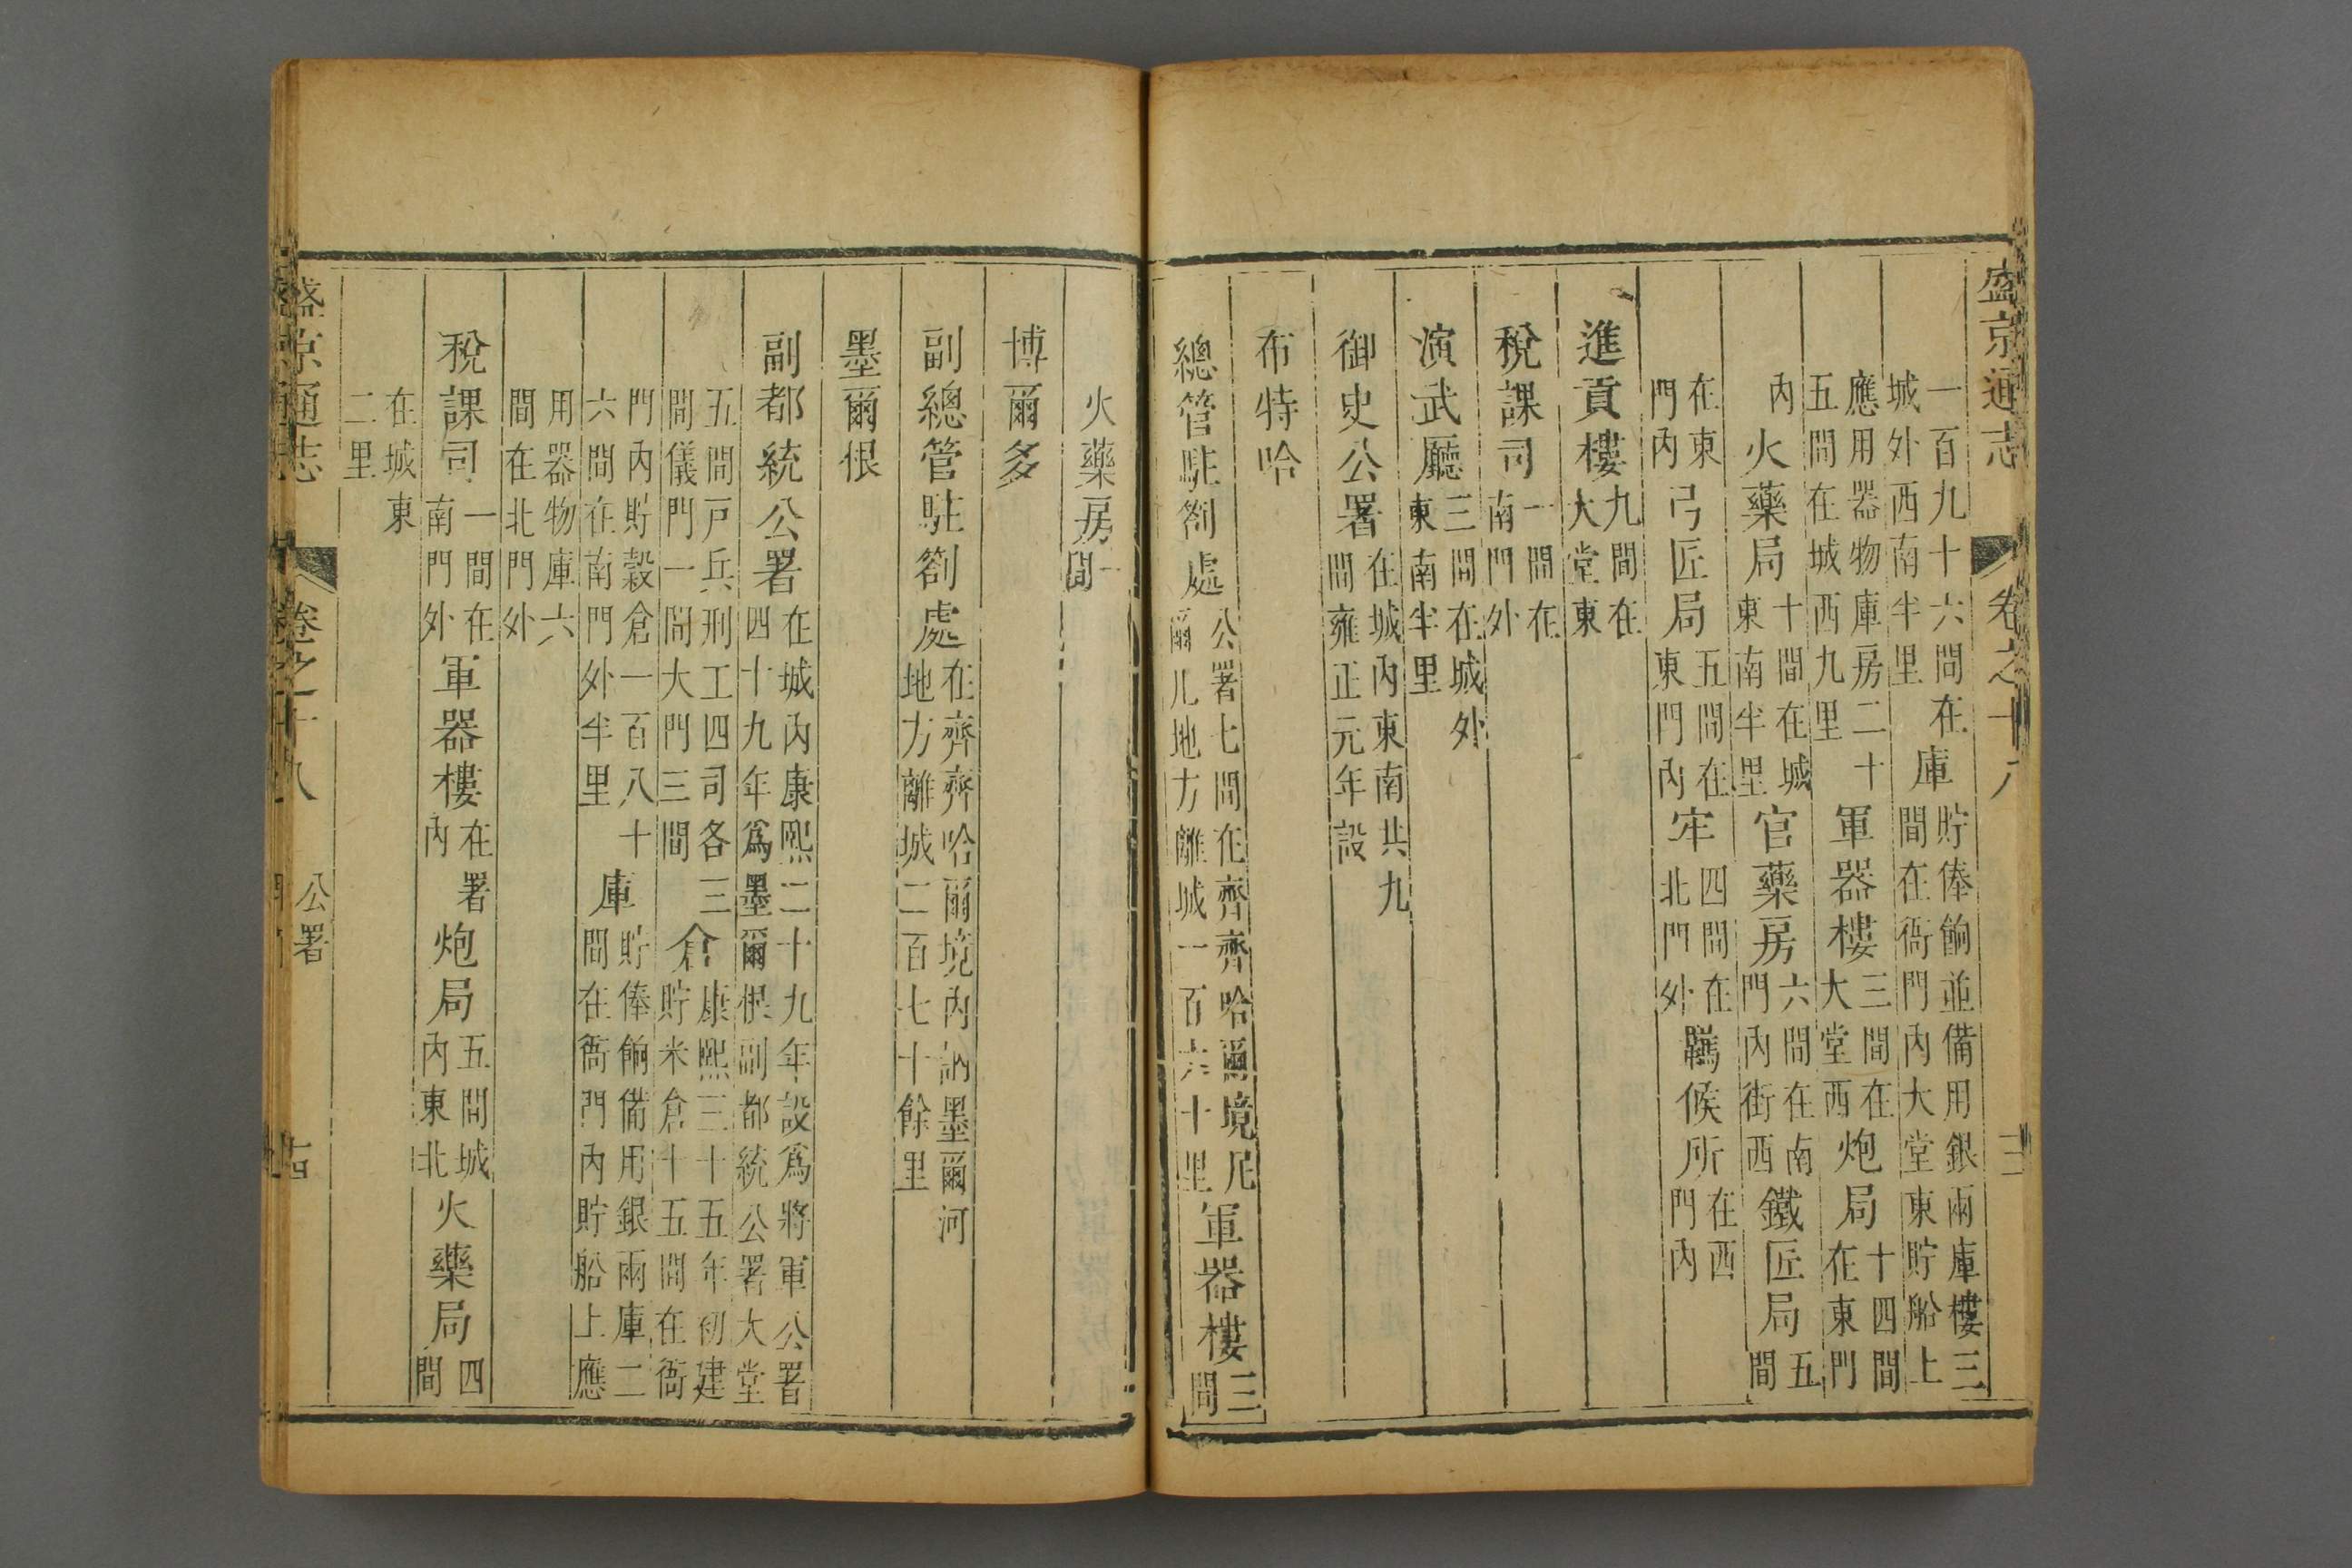 盛京通志 卷之十八
一百九十六間在城外西南半里 庫 貯俸餉並備用銀兩庫樓三間在衙門內大堂東貯船上
應用器物庫房二十五間在城西九里 軍器樓 三間在大堂西 炮局 十四間在東門
內 火藥局 十間在城東南半里 官藥房 六間在南門內街西 鐵匠局 五間
在東門內 弓匠局 五間在東門內 牢 四間在北門外 羈候所 在西門內
進貢樓 九間在大堂東
稅課司 一間在南門外
演武廳 三間在城外東南半里
御史公署 在城內東南共九間雍正元年設
布特哈
總管駐劄處 公署七間在齊齊哈爾境尼爾几地方離城一百六十里 軍器樓 三間
火藥房 一間
博爾多
副總管駐劄處 在齊齊哈爾境內訥墨爾河地方離城二百七十餘里
墨爾根
副都統公署 在城內康熙二十九年設為將軍公署四十九年為墨爾根副都統公署大堂
五間戶兵刑工四司各三間儀門一間大門三間 倉 康熙三十五年初建貯米倉十五間在衙
門內貯穀倉一百八十六間在南門外半里 庫 貯俸餉備用銀兩庫二間在衙門內貯船上應
用器物庫六間在北門外
稅課司 一間在南門外 軍器樓 在署內 炮局 五間城內東北 火藥局 四間
在城東二里
盛京通志 卷之十八 公署 十四